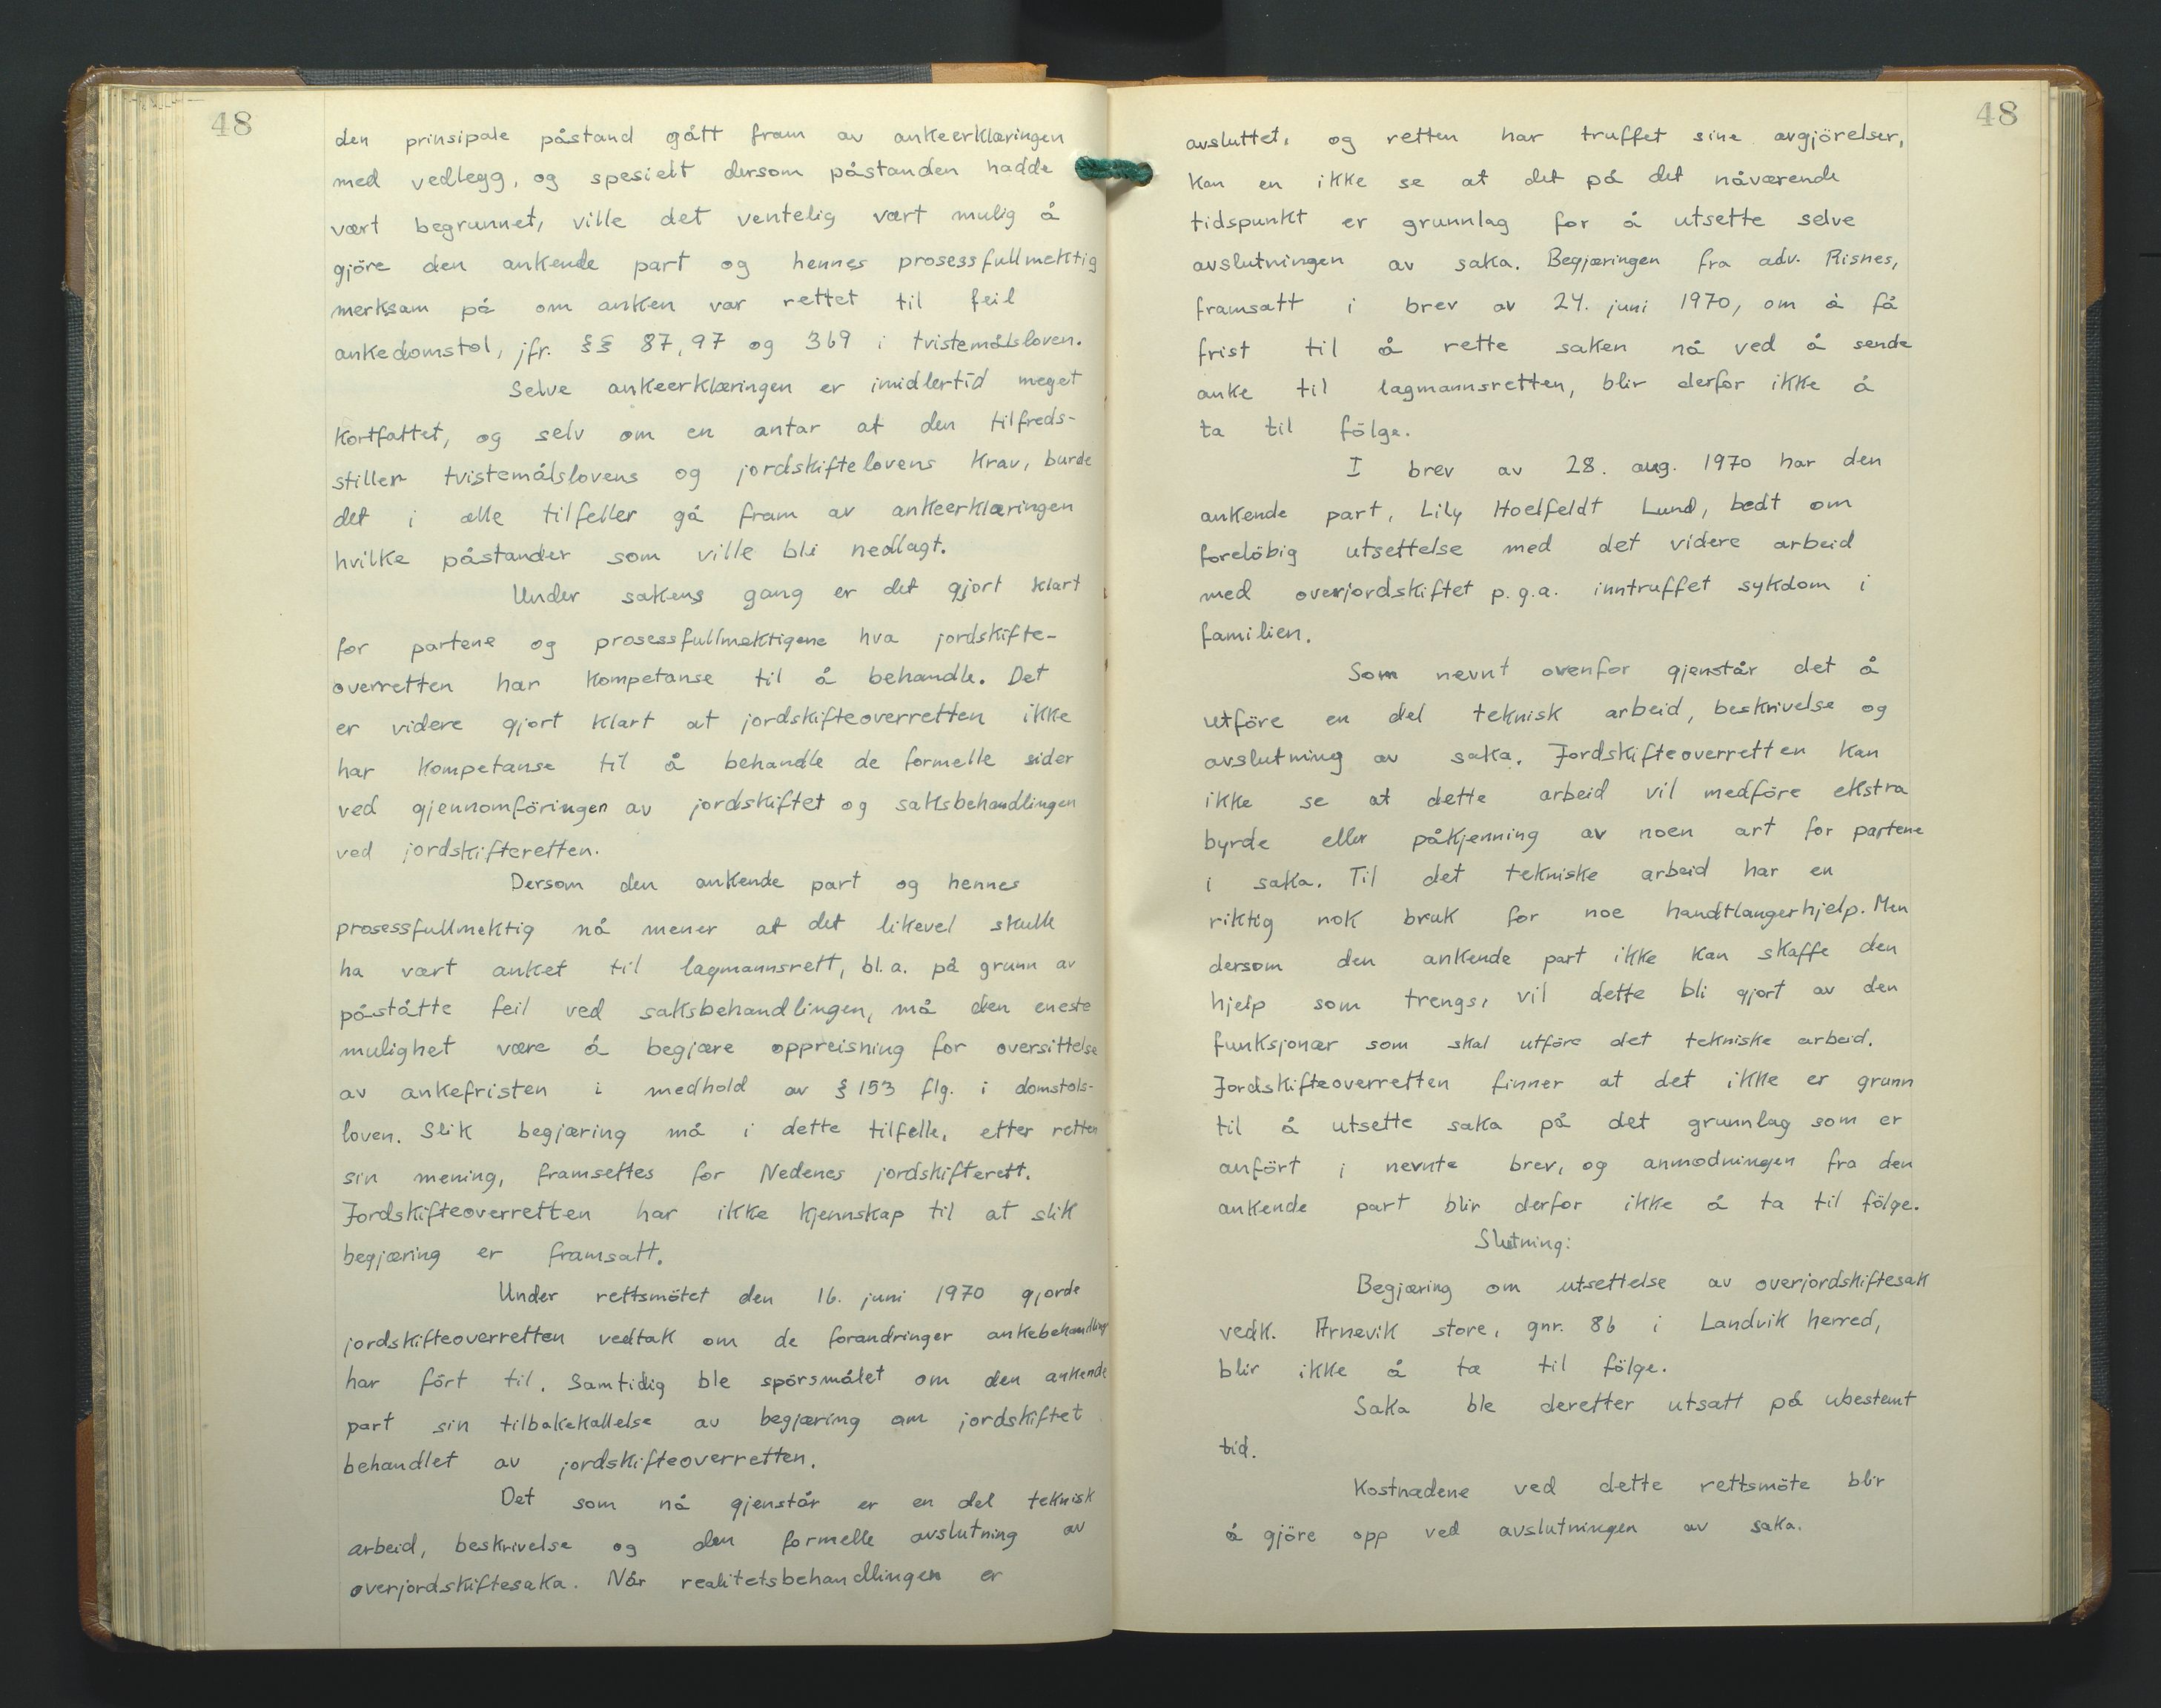 48
den prinsipale påstand gått fram av ankeerklæringen
med vedlegg, og spesielt dersom påstanden hadde
vært begrunnet, ville det ventelig vært mulig å
gjöre den ankende part og hennes prosessfullmektig
merksam på om anken var rettet til feil
ankedomstol, jfr. §§ 87, 97 og 369 i tvistemålsloven.
Selve ankeerklæringen er imidlertid meget
kortfattet, og selv om en antar at den tilfreds-
stiller tvistemålslovens og jordskiftelovens krav, burde
det i alle tilfeller gå fram av ankeerklæringen
hvilke påstander som ville bli nedlagt.
Under sakens gang er det gjort klart
for partene og prosessfullmektigene hva jordskifte-
overretten har kompetanse til å behandle. Det
er videre gjort klart at jordskifteoverretten ikke
har kompetanse til å behandle de formelle sider
ved gjennomföringen av jordskiftet og saksbehandlingen
ved jordskifteretten.
Dersom den ankende part og hennes
prosessfullmektig nå mener at det likevel skulle
ha vært anket til lagmannsrett, bl.a. på grunn av
påståtte feil ved saksbehandlingen, må den eneste
mulighet være å begjære oppreisning for oversittelse
av ankefristen i medhold av § 153 flg. i domstols-
loven. Slik begjæring må i dette tilfelle, etter retten
sin mening, framsettes for Nedenes jordskifterett.
Jordskifteoverretten har ikke kjennskap til at slik
begjæring er framsatt.
Under rettsmötet den 16. juni 1970 gjorde
jordskifteoverretten vedtak om de forandringer ankebehandling
har fört til. Samtidig ble spörsmålet om den ankende
part sin tilbakekallelse av begjæring om jordskiftet
behandlet av jordskifteoverretten.
Det som nå gjenstår er en del teknisk
arbeid, beskrivelse og den formelle avslutning av
overjordskiftesaka. Når realitetsbehandlingen er
48
avsluttet, og retten har truffet sine avgjörelser,
kan en ikke se at det på det nåværende
tidspunkt er grunnlag for å utsette selve
avslutningen av saka. Begjæringen fra adv. Risnes,
framsatt i brev av 24. juni 1970, om å få
frist til å rette saken nå ved å sende
anke til lagmannsretten, blir derfor ikke å
ta til fölge.
I brev av 28. aug. 1970 har den
ankende part, Lily Hoelfeldt Lund, bedt om
forelöbig utsettelse med det videre arbeid
med overjordskiftet p.g.a. inntruffet sykdom i
familien.
Som nevnt ovenfor gjenstår det å
utföre en del teknisk arbeid, beskrivelse og
avslutning av saka. Jordskifteoverretten kan
ikke se at dette arbeid vil medföre ekstra
byrde eller påkjenning av noen art for partene
i saka. Til det tekniske arbeid har en
riktig nok bruk for noe handtlangerhjelp. Men
dersom den ankende part ikke kan skaffe den
hjelp som trengs, vil dette bli gjort av den
funksjonær som skal utföre det tekniske arbeid.
Jordskifteoverretten finner at det ikke er grunn
til å utsette saka på det grunnlag som er
anfört i nevnte brev, og anmodningen fra den
ankende part blir derfor ikke å ta til fölge.
Slutning:
Begjæring om utsettelse av overjordskiftesak
vedk. Arnevik store, gnr. 86 i Landvik herred,
blir ikke å ta til fölge.
Saka ble deretter utsatt på ubestemt
tid.
Kostnadene ved dette rettsmöte blir
å gjöre opp ved avslutningen av saka.